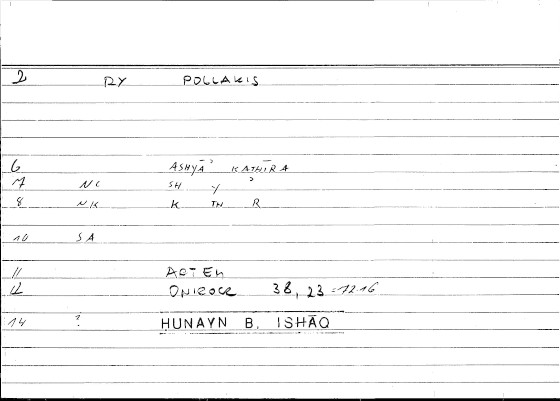 2 DY POLLAKIS
6 ASHYĀʾ KATHĪRA
7 NC SH Y ʾ
8 NK K TH R
10 SA
11 ARTEM
12 ONIROCR 38, 23 = 1216
14 ? HUNAYN B. ISHĀQ